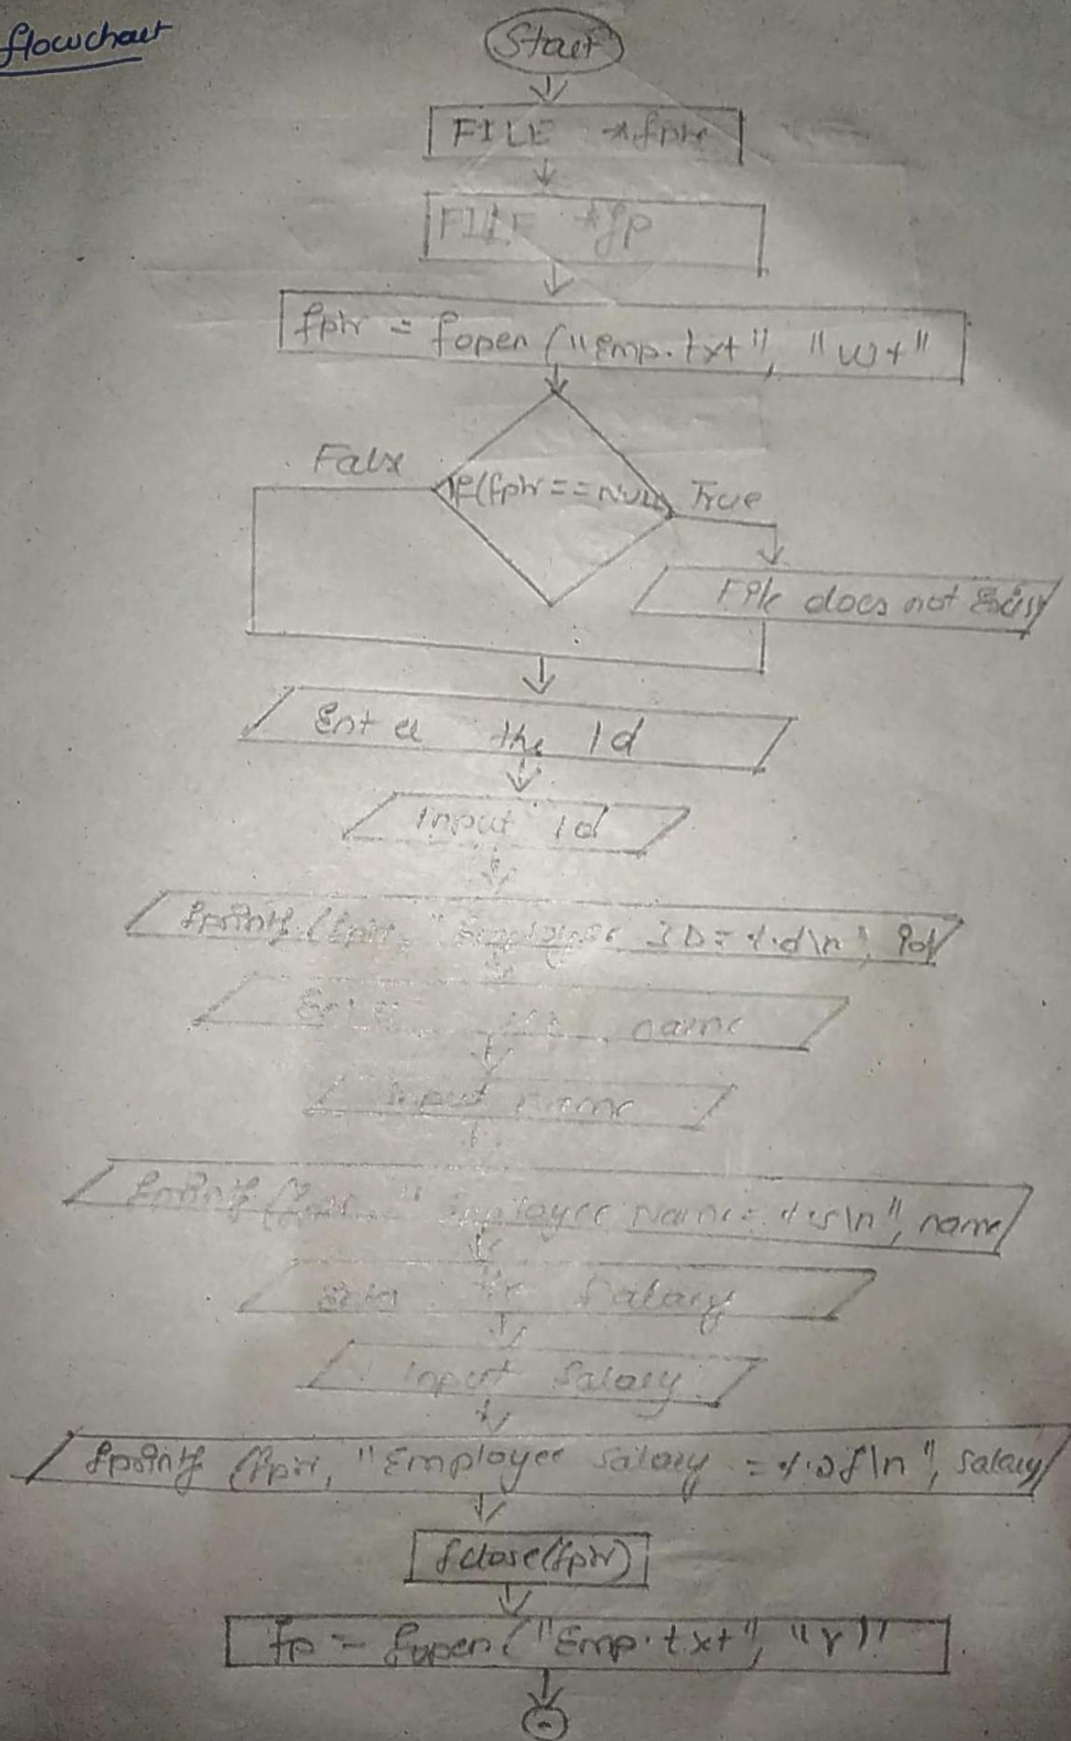 flowchart
Start
FILE *fptr
FILE *fp
fptr = fopen ("Emp.txt", "w+"
False
if(fptr == NULL
True
File does not Exist
Enter the Id
Input Id
fprintf (fptr, "Employee ID = %d\n", id
Enter the name
Input name
fprintf (fptr, "Employee Name = %s\n", name
Enter the Salary
Input Salary
fprintf (fptr, "Employee Salary = %.2f\n", Salary
fclose(fptr)
fp = fopen ("Emp.txt", "r")